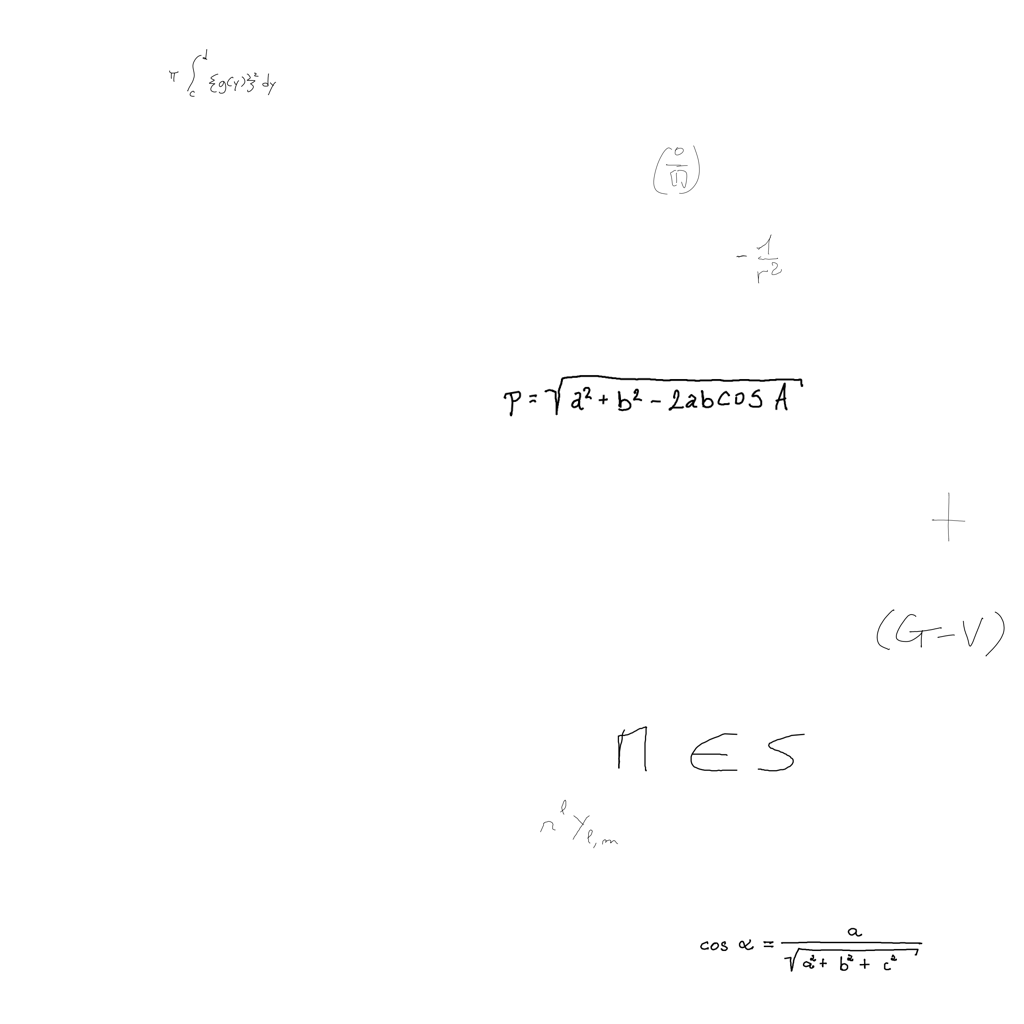 π ∫_c^d {g(y)}² dy
-\frac{1}{r^2}
p = \sqrt{a² + b² - 2ab cos A}
+
(G-V)
n ∈ S
r^ℓ Y_{ℓ,m}
cos α = \frac{a}{\sqrt{a² + b² + c²}}